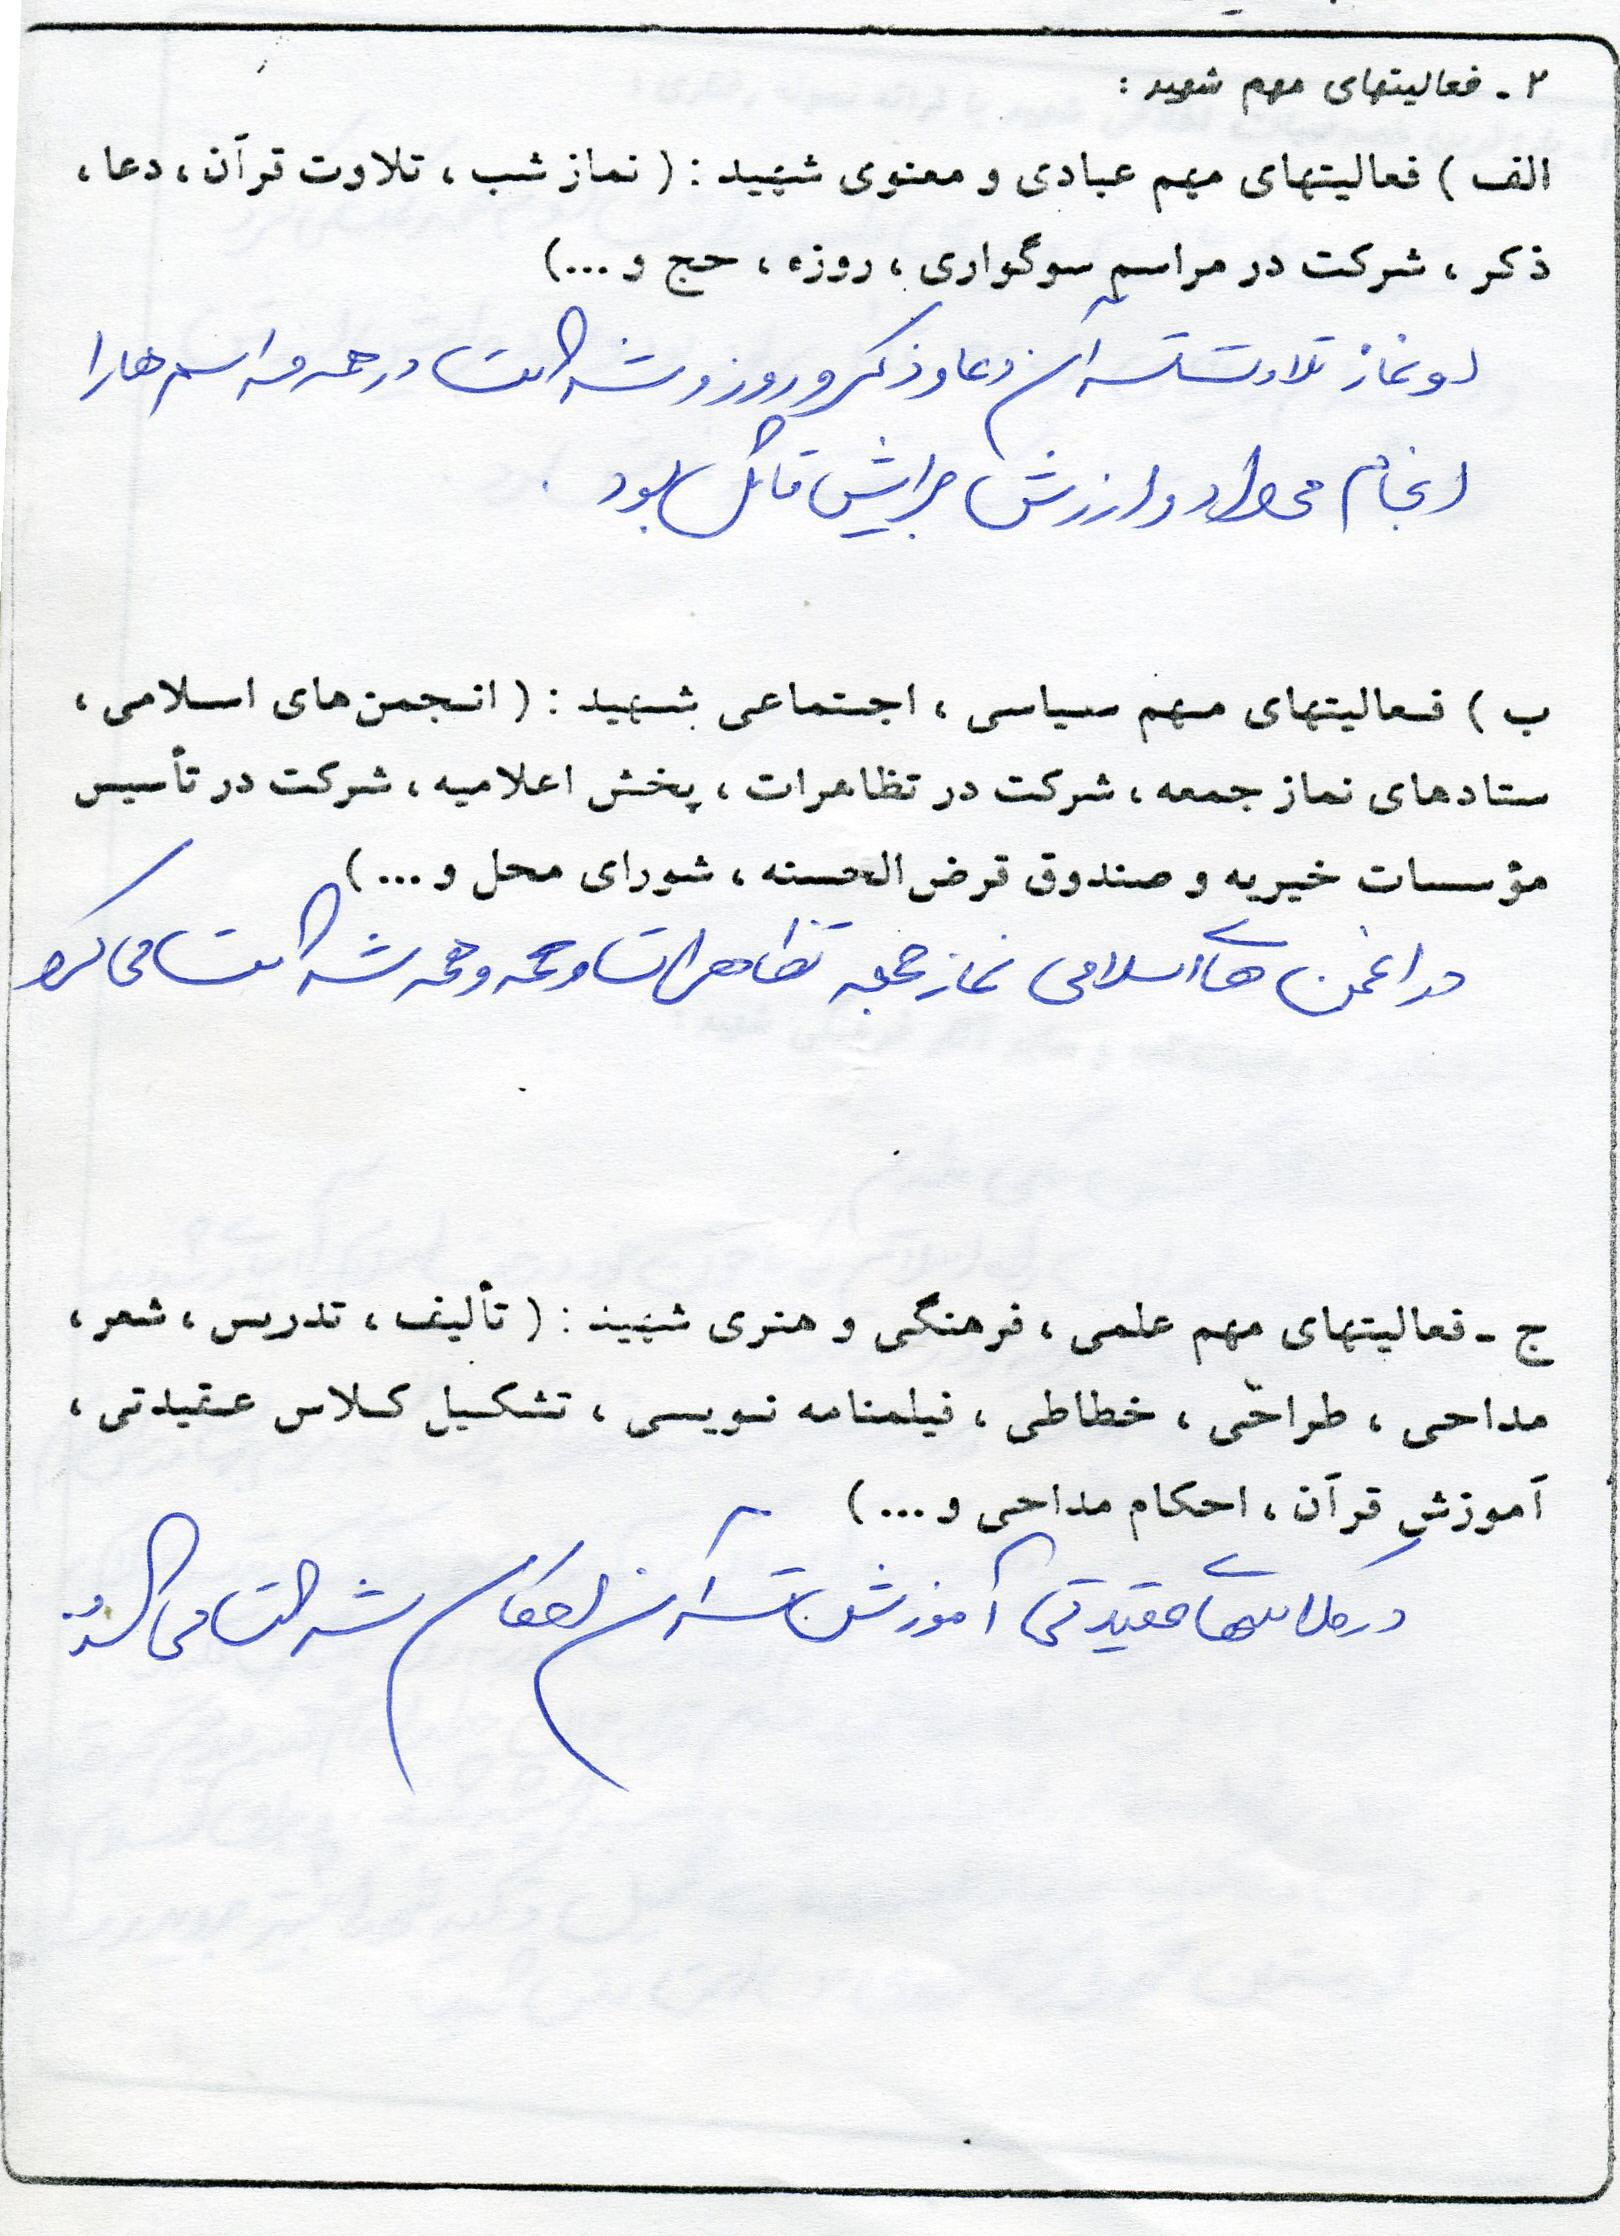 ۲ - فعالیتهای مهم شهید :
الف ) فعالیتهای مهم عبادی و معنوی شهید : ( نماز شب ، تلاوت قرآن ، دعا ،
ذکر ، شرکت در مراسم سوگواری ، روزه ، حج و ...)
او نماز تلاوت قرآن دعا و ذکر و روزه و شرکت در همه مراسم ها را
انجام می داد و ارزش برایش قائل بود .
ب ) فعالیتهای مهم سیاسی ، اجتماعی شهید : ( انجمن‌های اسلامی ،
ستادهای نماز جمعه ، شرکت در تظاهرات ، پخش اعلامیه ، شرکت در تأسیس
مؤسسات خیریه و صندوق قرض‌الحسنه ، شورای محل و ... )
در انجمن های اسلامی نماز جمعه تظاهرات و همه و همه شرکت می کرد
ج - فعالیتهای مهم علمی ، فرهنگی و هنری شهید : ( تألیف ، تدریس ، شعر ،
مداحی ، طراحی ، خطاطی ، فیلمنامه نویسی ، تشکیل کلاس عقیدتی ،
آموزش قرآن ، احکام مداحی و ... )
در کلاسهای عقیدتی آموزش قرآن احکام شرکت می کرد